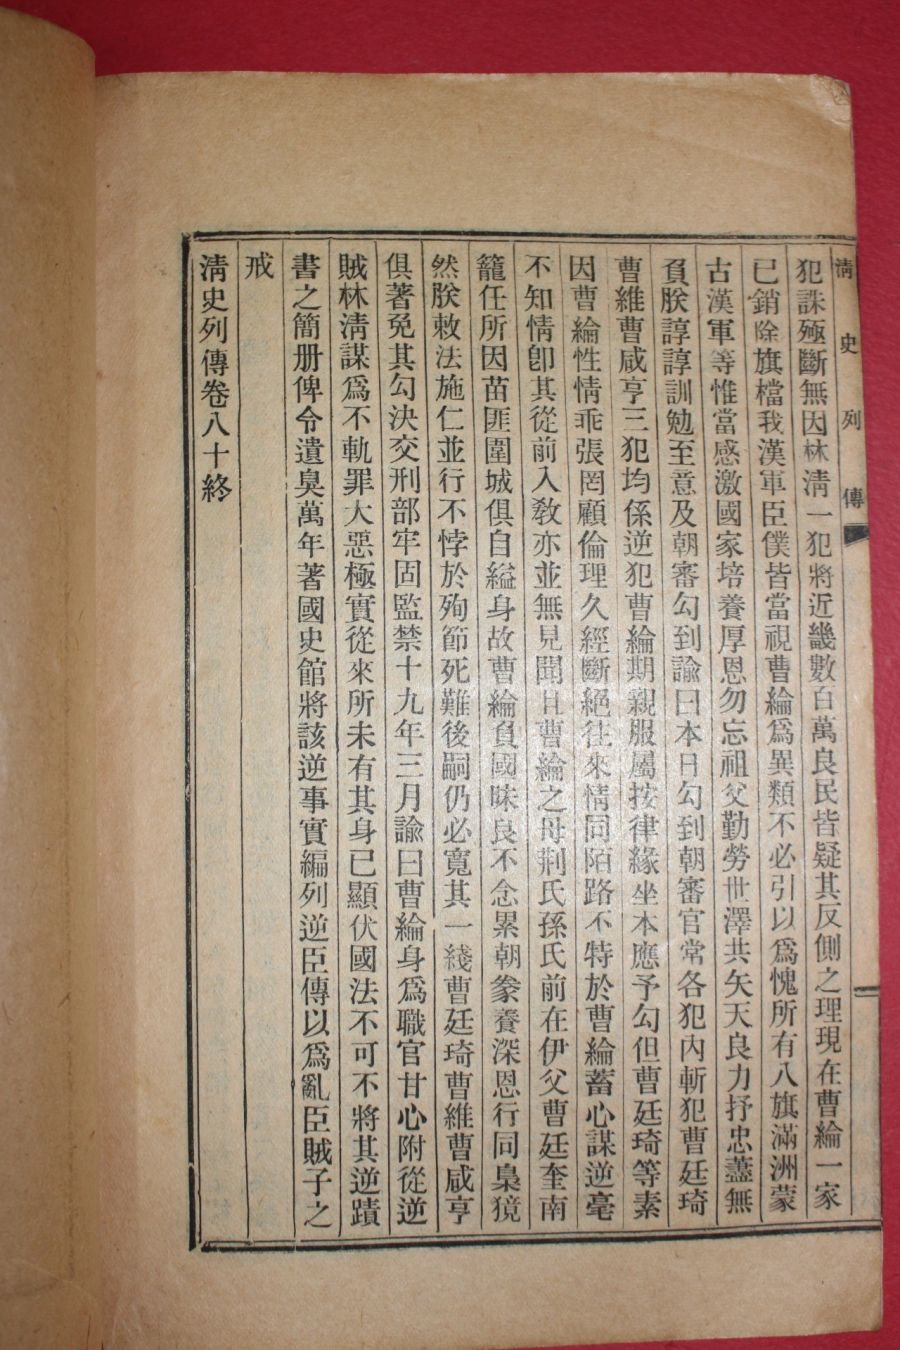 清史列傳
犯誅殛斷無因林淸一犯將近畿數百萬良民皆疑其反側之理現在曹綸一家
已銷除旗檔我漢軍臣僕皆當視曹綸爲異類不必引以爲愧所有八旗滿洲蒙
古漢軍等惟當感激國家培養厚恩勿忘祖父勤勞世澤共矢天良力抒忠藎無
負朕諄諄訓勉至意及朝審勾到諭曰本日勾到朝審官常各犯內斬犯曹廷琦
曹維曹咸亨三犯均係逆犯曹綸期親服屬按律緣坐本應予勾但曹廷琦等素
因曹綸性情乖張罔顧倫理久經斷絕往來情同陌路不特於曹綸蓄心謀逆毫
不知情卽其從前入敎亦並無見聞且曹綸之母荆氏孫氏前在伊父曹廷奎南
籠任所因苗匪圍城俱自縊身故曹綸負國昧良不念累朝豢養深恩行同梟獍
然朕敕法施仁並行不悖於殉節死難後嗣仍必寬其一綫曹廷琦曹維曹咸亨
俱著免其勾決交刑部牢固監禁十九年三月諭曰曹綸身爲職官甘心附從逆
賊林淸謀爲不軌罪大惡極實從來所未有其身已顯伏國法不可不將其逆蹟
書之簡册俾令遺臭萬年著國史館將該逆事實編列逆臣傳以爲亂臣賊子之
戒
淸史列傳卷八十終